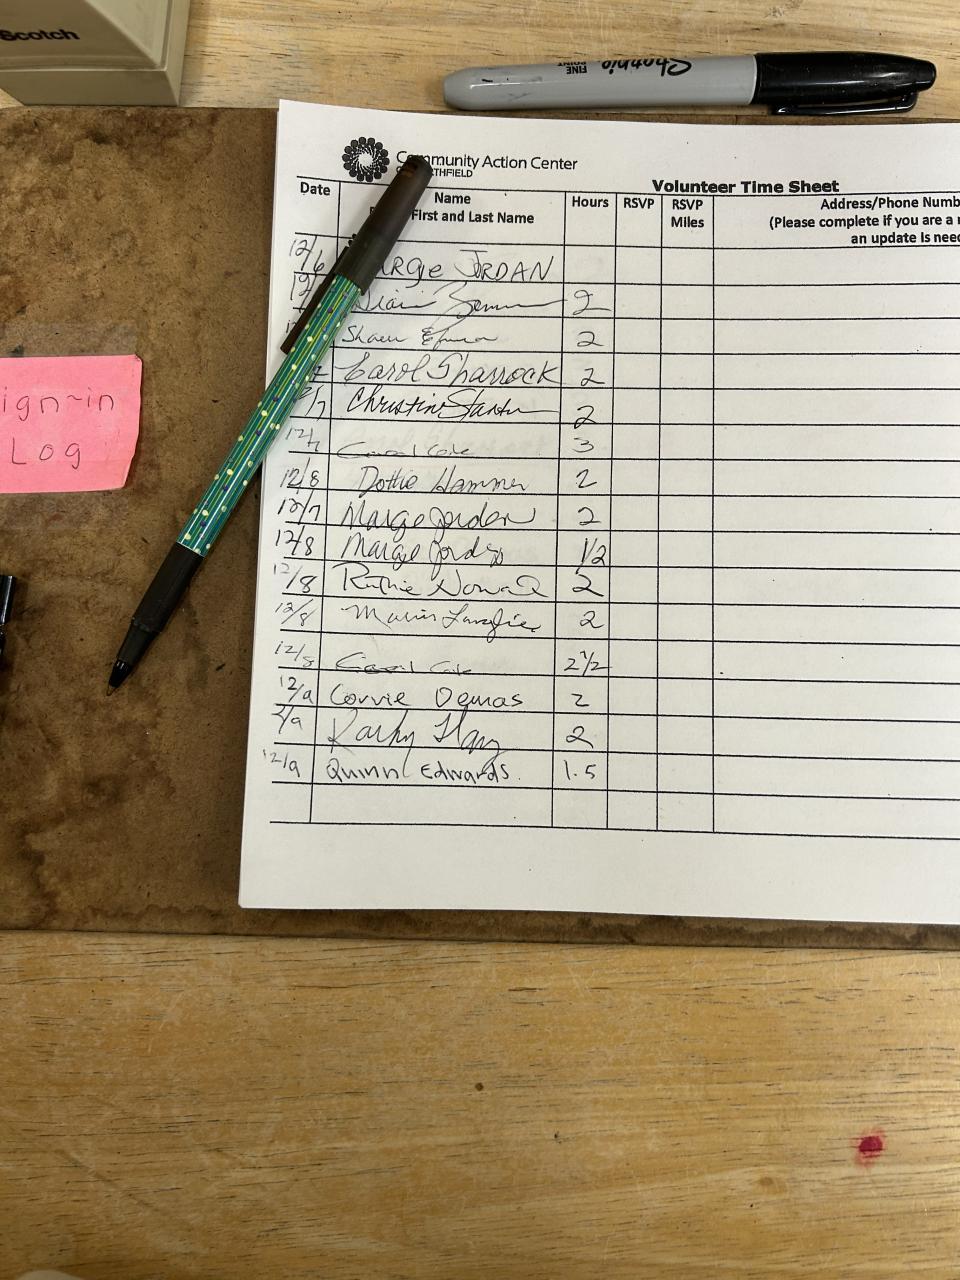 Scotch
Sharpie
FINE
POINT
Community Action Center
THFIELD
Volunteer Time Sheet
Date
Name
First and Last Name
Hours
RSVP
RSVP
Miles
Address/Phone Numb
(Please complete if you are a
an update is need
12/6 ARGIE JORDAN
2
Shawn 2
Carol Sharrock 2
/7 Christine 2
12/7 Carol Cole 3
12/8 Dottie Hammer 2
12/7 Marge Jordan 2
12/8 Marge 1/2
12/8 Ruthie Nowak 2
12/8 2
12/8 Carol Cole 2 1/2
12/9 Corrie Demas 2
2/9 Kathy 2
12/9 Quinn Edwards. 1.5
ign-in
Log